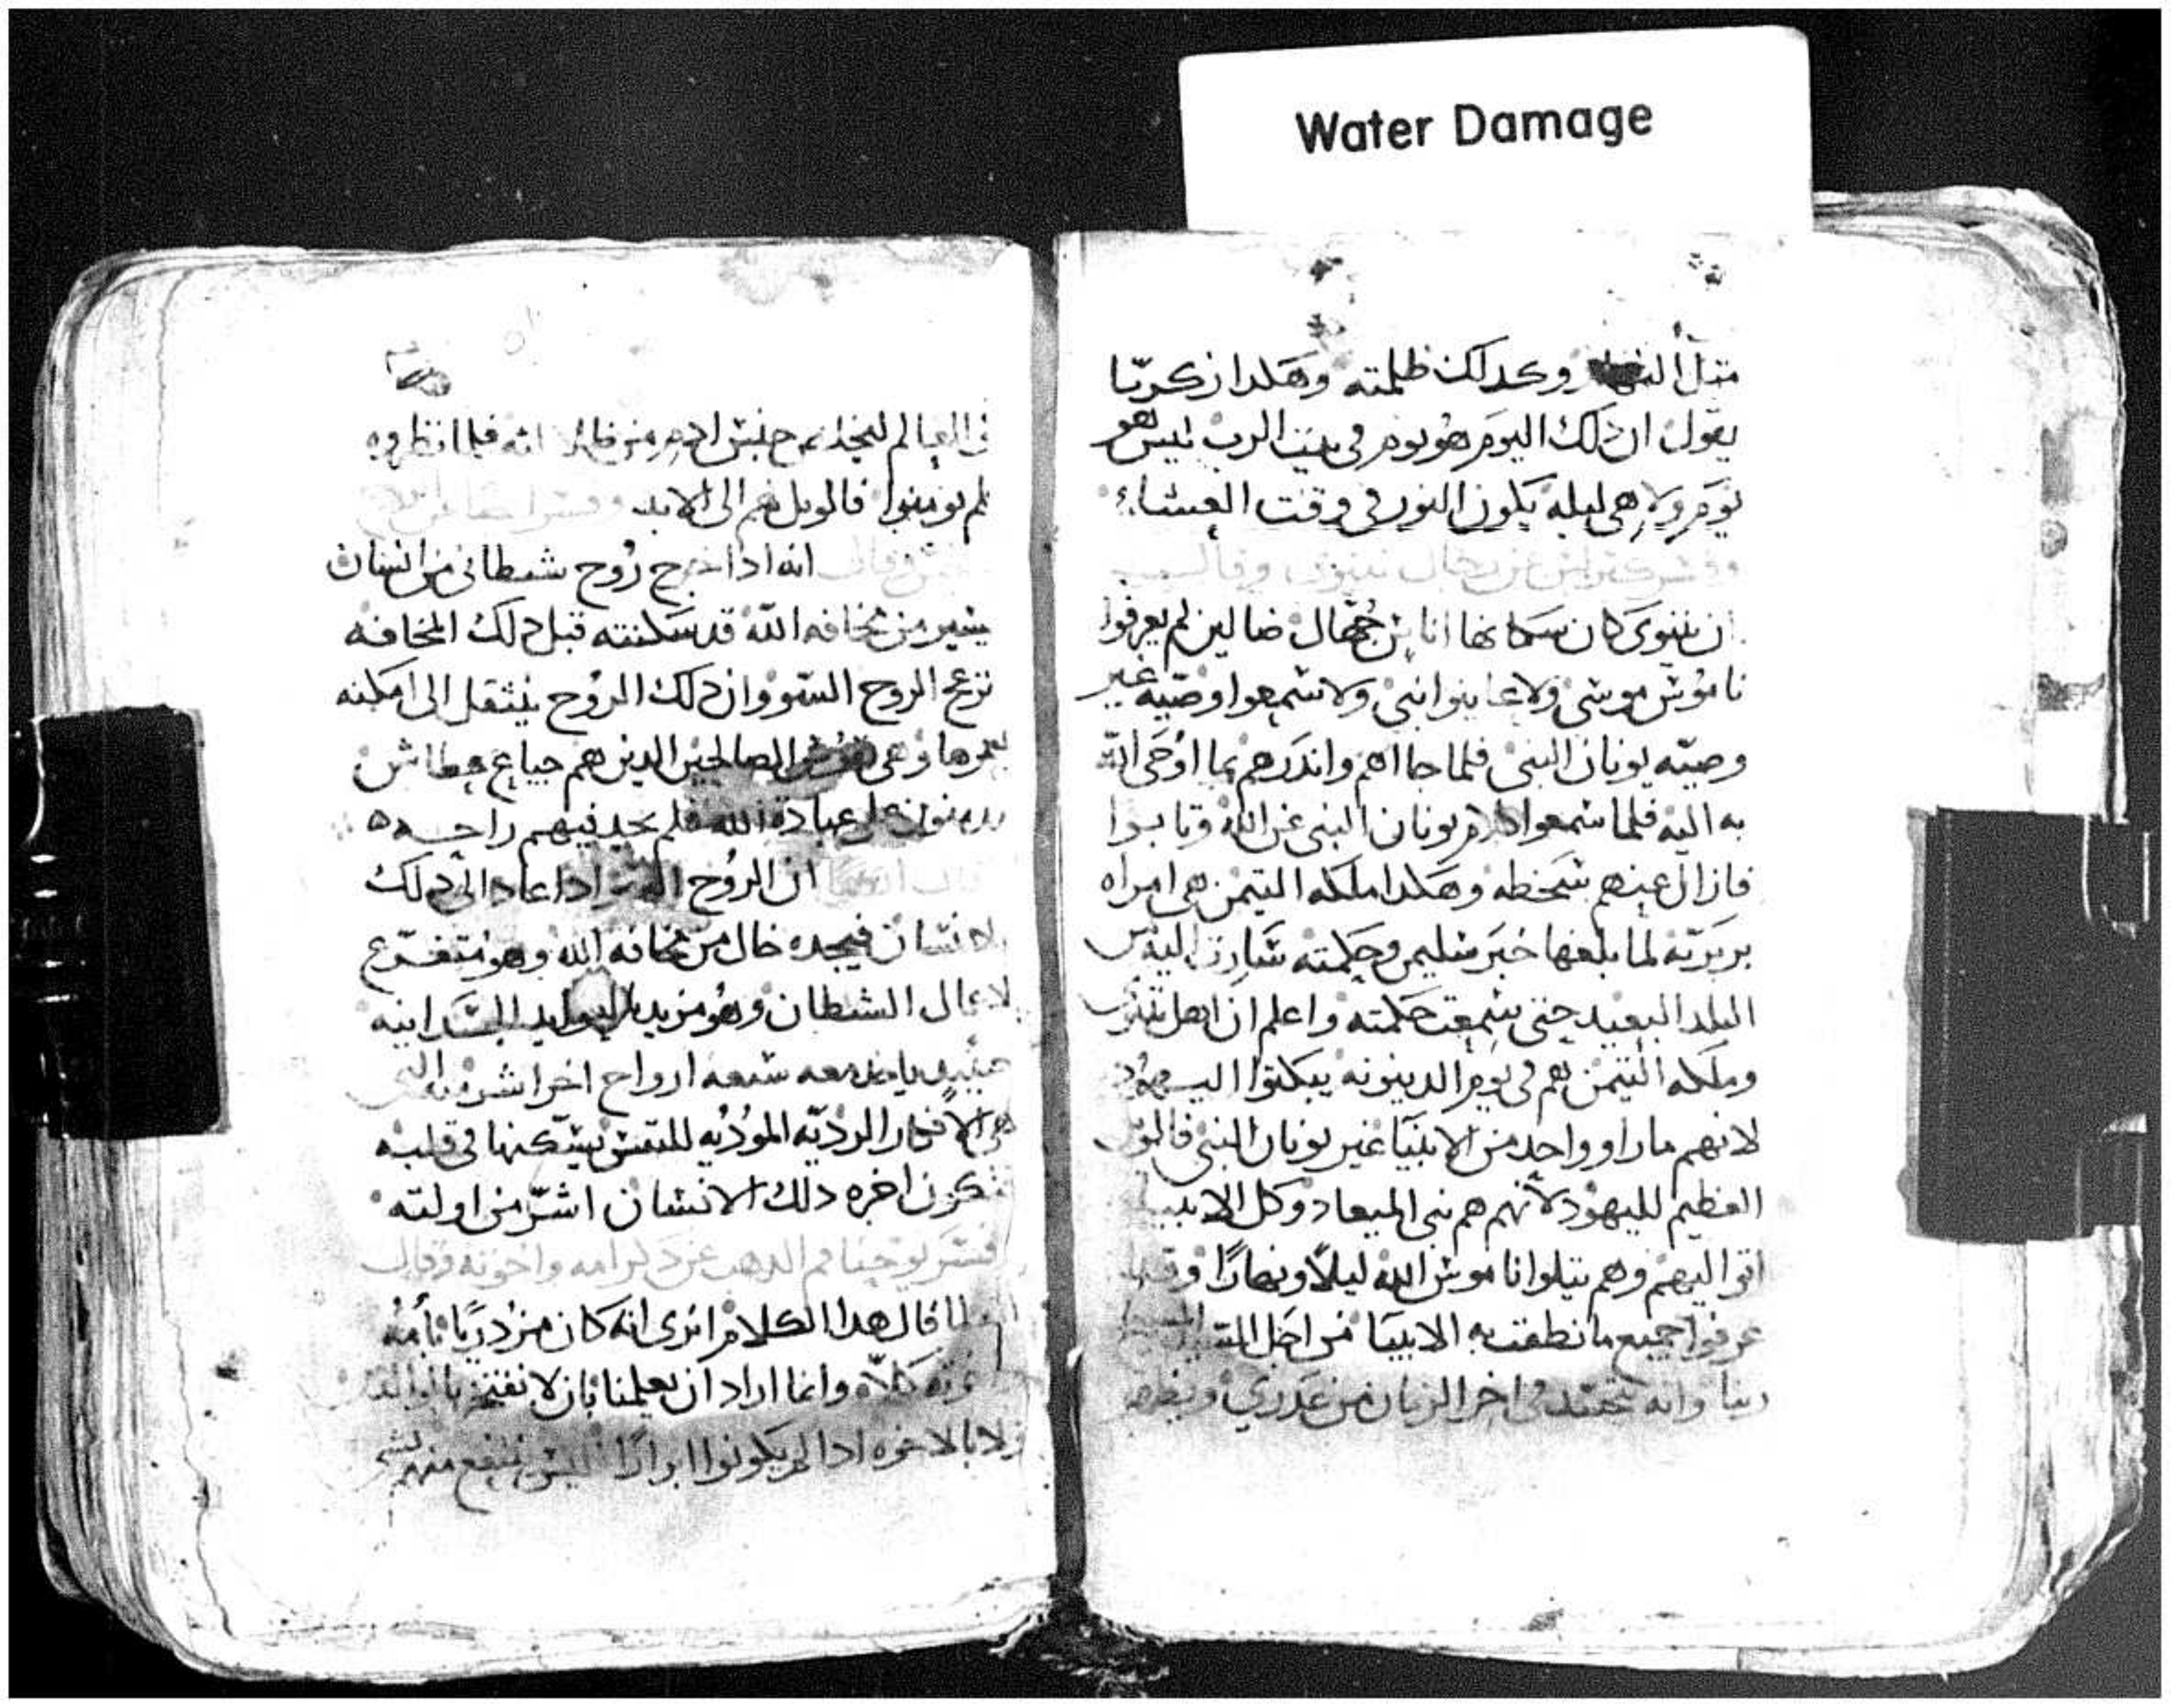 Water Damage
مثل النهار وكدلك ظلمته وهكدا زكريّا
يقول ان دلك اليوم هو يوم في بيت الرب ليس هو
يوم ولا هي ليله يكون النور في وقت العشاء
وفسر عن رجال نينوى وقال
ان نينوى كان سكانها اناس جُهّال ضالين لم يعرفوا
ناموس موسى ولا عاينوا نبى ولا سمعوا وصيه غير
وصيّه يونان النبى فلما جااهم واندرهم بما اوحى الله
به اليه فلما سمعوا كلام يونان النبى عن الله وتابوا
فازال عنهم سخطه وهكدا ملكه التيمن هى امراه
بربريّه لما بلغها خبر سليمن وحكمته سارت اليه من
البلد البعيد حتى سمعت حكمته واعلم ان اهل نينوى
وملكه التيمن هم فى يوم الدينونه يبكتوا اليهود
لانهم ماراوا واحد من الانبيا غير يونان النبى فالويل
العظيم لليهود لانهم هم بنى الميعاد وكل الانبيا
اتوا اليهم وهم يتلوا ناموس الله ليلًا ونهارًا وقد
عرفوا جميع ما نطقت به الانبيا من اجل المسيح
ربنا وانه يتجسد فى اخر الزمان من عدرى ويظهر
فى العالم لينجد جنس ادم من فلما نظروه
لم يومنوا فالويل لهم الى الابد وفسر
وقال انه ادا خرج رُوح شيطانى من انسان
يشير من مخافه الله قد سكنته قبل دلك المخافه
تزعج الروح السّوو وان دلك الروح ينتقل الى امكنه
وهى نفوس الصالحين الدين هم جياع عطاش
على عبادة الله فلم يجد فيهم راحه
قال ايضا ان الرُوح ادا عاد الى دلك
الانسان فيجده خال من مخافه الله وهو متفرّع
لاعمال الشيطان وهو مزين
حينيدٍ ياخد معه سبعه ارواح اخر اشر منه التى
هى الافكار الرديّه الموديه للنفس يسكنها فى قلبه
فتكون اخره دلك الانسان اشرّ من اولته
فسر يوحنا فم الدهب عن كرامه واخوته وقال
لما قال هدا الكلام اترى انه كان مزدريًا بامه
واخوته كلّا وانما اراد ان يعلمنا بان لا نفتخر
ولا بالاخوه ادا لم يكونوا ابرارًا ليس ننتفع منهم بشى